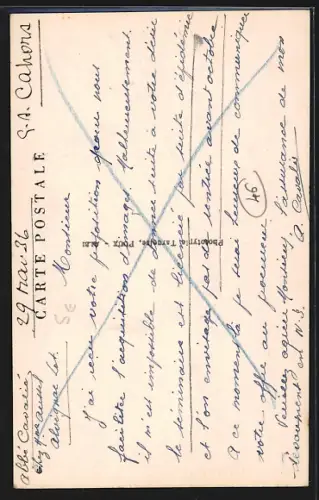 29 Mai 36
G. A. Cahors
CARTE POSTALE
Abbé Cavalié
Alvignac Lot.
Monsieur
J'ai reçu votre proposition pour nous
faciliter l'acquisition d'images. Malheureusement.
il m'est impossible de donner suite à votre désir
le séminaire est licencié par suite d'épidémie
et l'on envisage pas de rentrée avant octobre
A ce moment là je serai heureux de communiquer
votre offre au
Veuillez agréer Monsieur, l'assurance de mon
dévouement en N. S.
A. Cavalié
46
5E
Phototypie Tardy